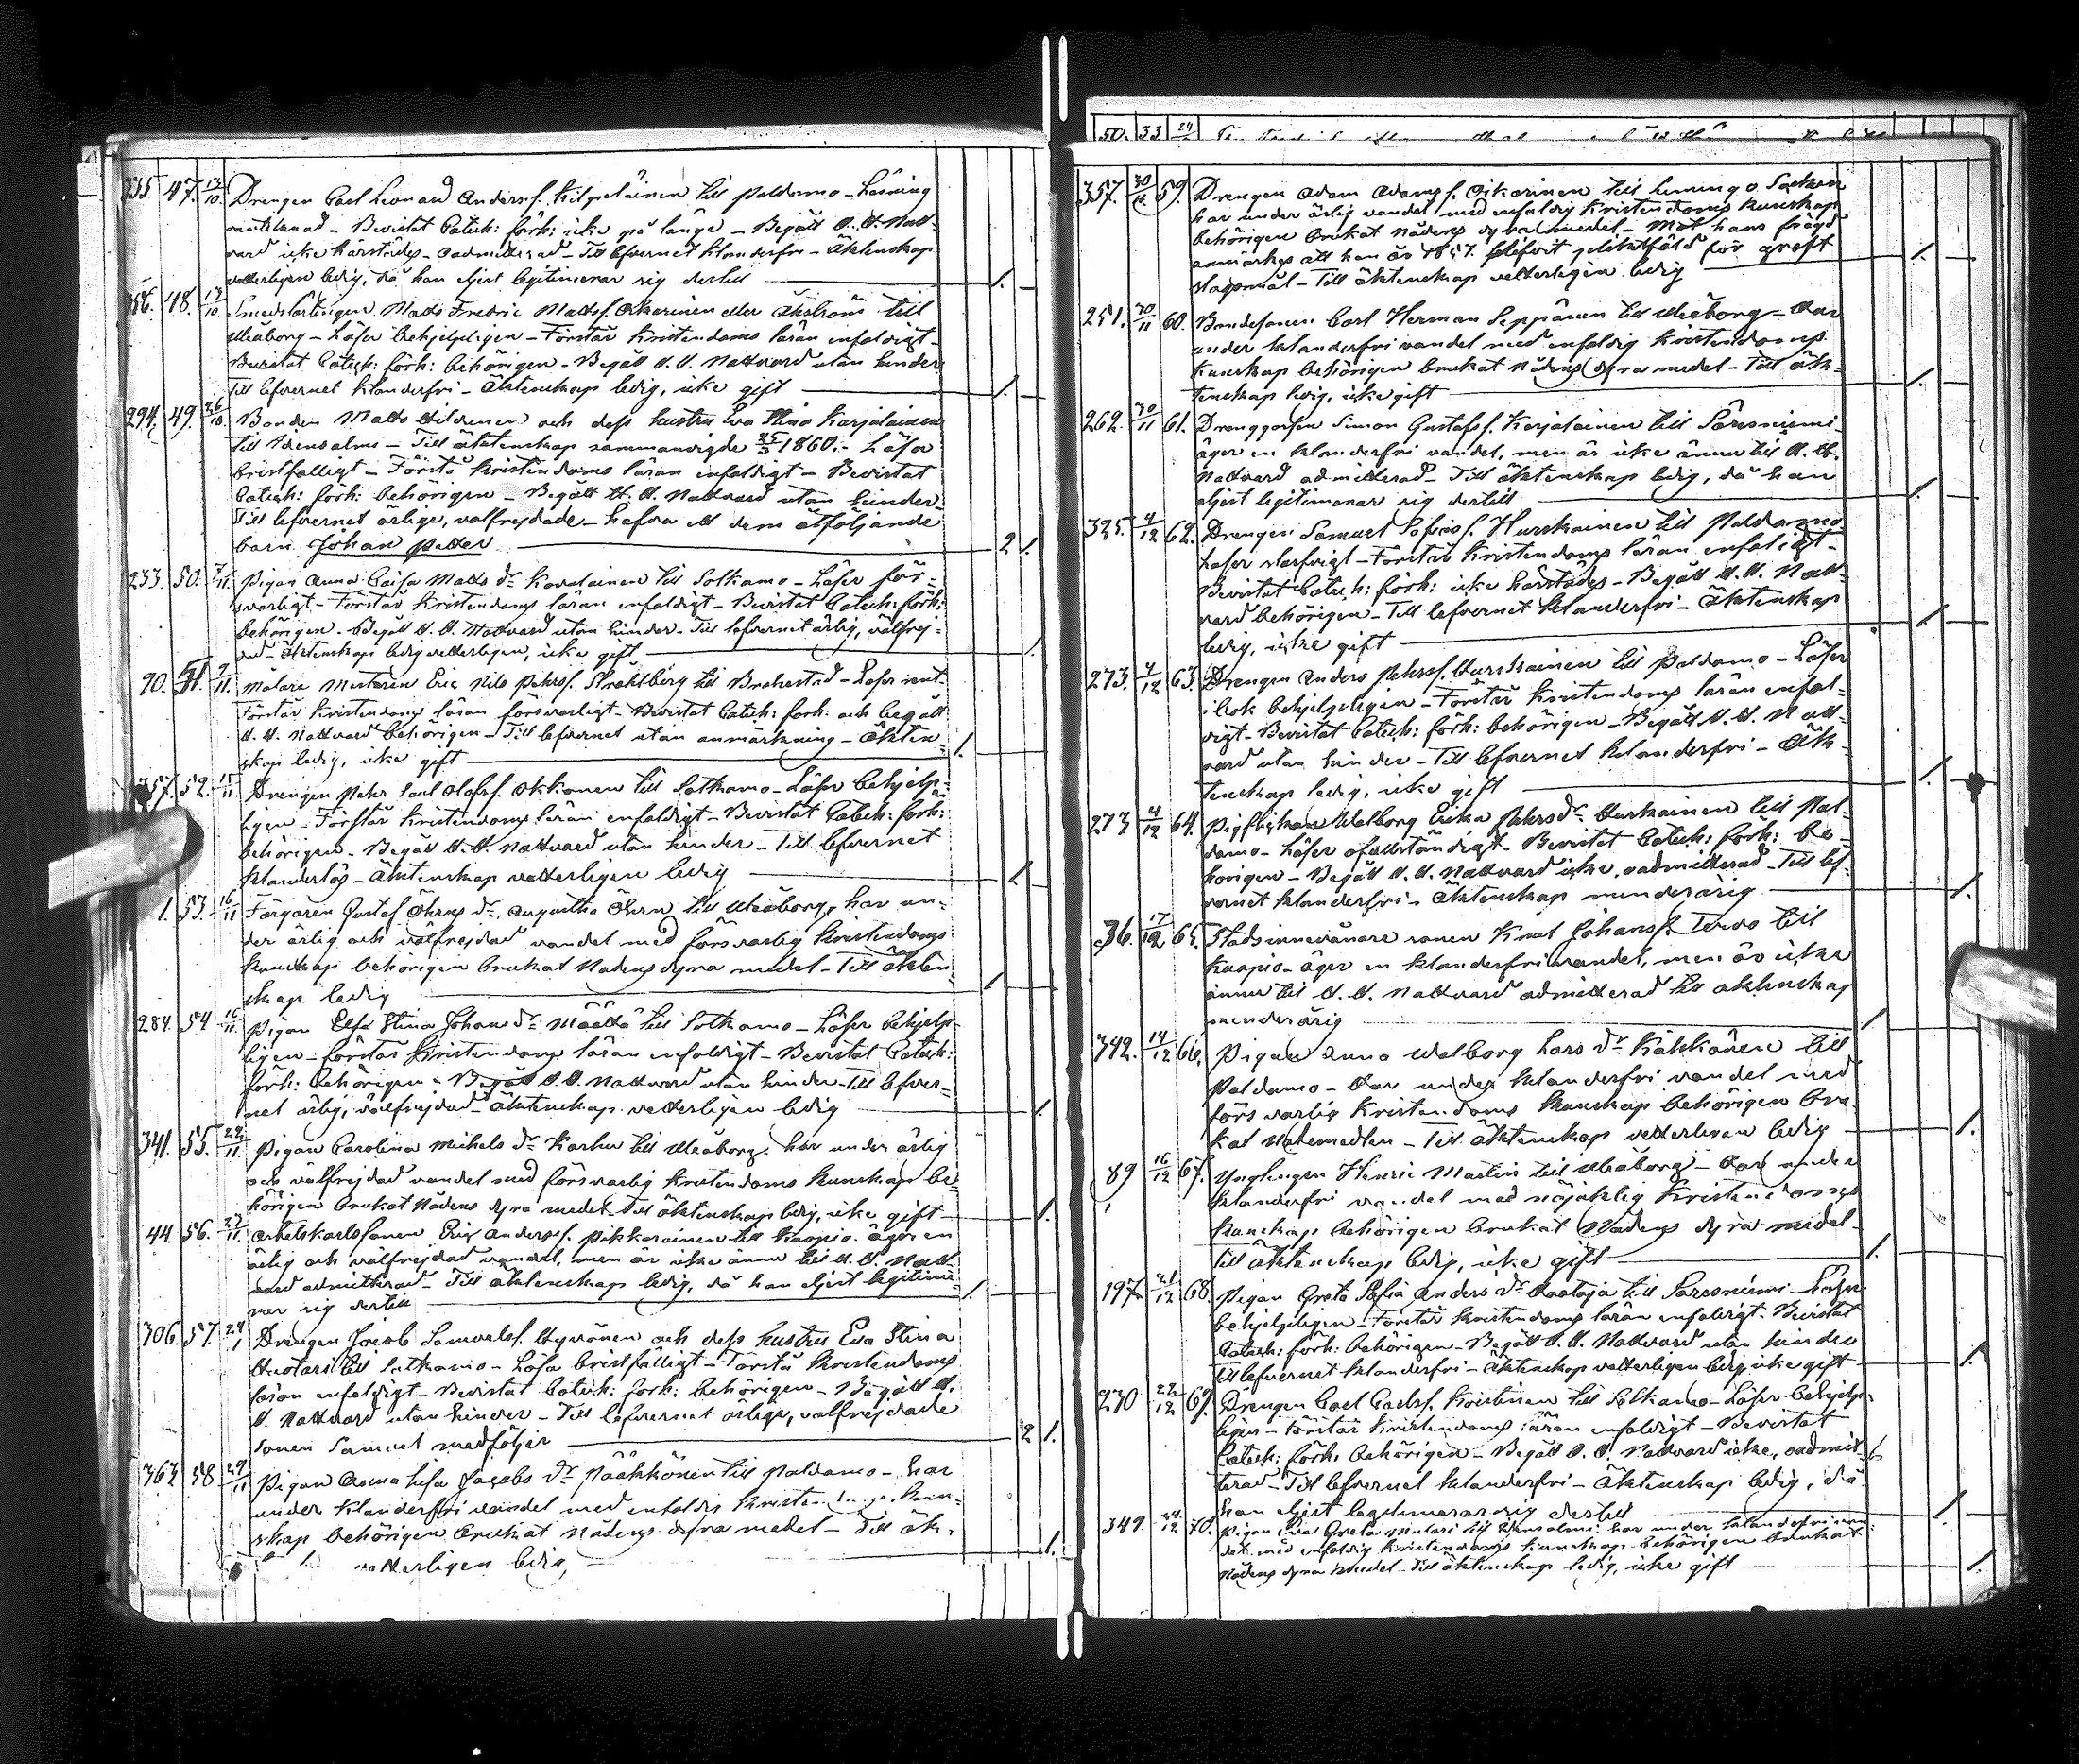 335. 47. 13/10. Drengen Carl Leonard Anderss. Kilpeläinen till Paldamo - Läsning
vard icke härstädes - oadmitterad - Till lefvernet klanderfri - Äktenskap
vetterligen ledig, då han eljest legitimerar rig dertill 1.
48. 13/10 Smedslärlingen Matts Fredric Mattss. Okarinen eller Åhström till
Uleåborg - Läser behjelpligen - Förstår Kristendoms läran enfaldigt -
Bevistat Catech: förh: behörigen - Begått H. H. Nattvard utan hinder
Till lefvernet klanderfri - Äktenskap ledig, icke gift 1.
294. 49. 26/10 Bonden Matts Hildunen och dess hustru Eva Stina Karjalainen
till Idensalmi - Till äktenskap sammanvigde 25/3 1860. - Läsa
bristfälligt - Förstå Kristendoms läran enfaldigt - Bevistat
Catech: förh: behörigen - Begått H. H. Nattvard utan hinder -
Till lefvernet ärlige, välfrejdade - hafva et dem åtföljande
barn Johan Petter 2 1.
233. 50. 7/11. Pigan Anna Caisa Matts dr Kovalainen till Sotkamo - Läser för-
svarligt - Förstår Kristendoms läran enfaldigt - Bevistat Catech: förh:
behörigen - Begått H. H. Nattvard utan hinder - Till lefvernet ärlig, välfrej-
dad - Äktenskap ledig vetterligen, icke gift 1.
90. 51. 9/11. Målare Mästaren Eric Nils Pehrss. Strahlberg till Brahestad - Läser rent -
Förstår Kristendoms läran försvarligt - Bevistat Catech: förh: och begått
H. H. Nattvard behörigen - Till lefvernet utan anmärkning - Äkten-
skap ledig, icke gift 1.
357. 52. 15/11. Drengen Pehr Paul Olofss. Okkonen till Sotkamo - Läser behjelp-
ligen - Förstår Kristendoms läran enfaldigt - Bevistat Catech: förh:
behörigen - Begått H. H. Nattvard utan hinder - Till lefvernet
klanderlös - Äktenskap vetterligen ledig 1
1. 53. 16/11 Färgaren Gustaf Öhrns dr. Augusta Öhrn till Uleåborg, har un-
der ärlig och välfrejdad vandel med försvarlig Kristendoms
kundskap behörigen brukat Nådens dyra medel - Till äkten-
skap ledig 1
284. 54 16/11. Pigan Elsa Stina Johans dr Määttä till Sotkamo - Läser behjelp-
ligen - förstår Kristendoms läran enfaldigt - Bevistat Catech:
förh: behörigen - Begått H. H. Nattvard utan hinder - Till lefver-
net ärlig, välfrejdad - Äktenskap vetterligen ledig 1.
341. 55. 22/11 Pigan Carolina Michels dr Karhu till Uleåborg. har under ärlig
och välfrejdad vandel med försvarlig Kristendoms kunskap be-
hörigen brukat Nådens dyra medel - Till äktenskap ledig, icke gift 1.
44. 56. 27/11 Arbetskarlssonen Eric Anderss. Pikkarainen till Kuopio. äger en
ärlig och välfrejdad vandel, men är icke ännu till H. H. Natt-
vard admitterad - Till äktenskap ledig, då han eljest legitime-
rar sig dertill 1.
306. 57. Drengen Jacob Samuelss. Hyvönen och dess hustru Eva Stina
Huotari till Sotkamo - Läsa bristfälligt - Förstå Kristendoms
läran enfaldigt - Bevistat Catech: förh: behörigen - Begått H.
H. Nattvard utan hinder - Till lefvernet ärlige, välfrejdade
Sonen Samuel medföljer 2 1.
363 58 29/11 Pigan Anna Lisa Jacobs dr Pääkkönen till Paldamo - har
under klanderfri vandel med enfaldig Kristendoms kun-
skap behörigen brukat Nådens dyra medel - Till äk-
vetterligen ledig, 1.
50. 33 24
357. 30/11. 59. Drengen Adam Adamss. Oikarinen till Limingo Socken
har under ärlig vandel med enfaldig Kristendoms kunskap
behörigen brukat Nådens dyra medel - Mot hans frägd
anmärkes att han år 1857 blifvit pliktfäld för groft
slagsmål - Till äktenskap vetterligen ledig 1.
251. 30/11 60. Bondesonen Carl Herman Seppänen till Uleåborg - Har
under klanderfri vandel med enfaldig Kristendoms
kunskap behörigen brukat Nådens dyra medel - Till äk-
tenskap ledig, icke gift 1.
262. 30/11 61. Drenggossen Simon Gustafss. Karjalainen till Säresniemi -
äger en klanderfri vandel, men är icke ännu till H. H.
Nattvard admitterad - Till äktenskap ledig, då han
eljest legitimerar sig dertill 1.
325. 4/12 62. Drengen Samuel Hurskainen till Paldamo
Läser slarfvigt - Förstår Kristendoms läran enfaldigt -
Bevistat Catech: förh: icke härstädes - Begått H. H. Natt-
vard behörigen - Till lefvernet klanderfri - Äktenskap
ledig, icke gift 1.
273. 4/12 63. Drengen Anders Pehrss. Hurskainen till Paldamo - Läser
i bok behjelpligen - Förstår Kristendoms läran enfal-
digt - Bevistat Catech: förh: behörigen - Begått H. H. Natt-
vard utan hinder - Till lefvernet klanderfri - Äk-
tenskap ledig, icke gift 1.
273 4/12 64. Pigflickan Walborg Erika Pehrs dr Hurskainen till Pal-
damo - Läser ofullständigt - Bevistat Catech: förh: be-
hörigen - Begått H. H. Nattvard icke, oadmitterad - Till lef-
vernet klanderfri - Äktenskap minderårig 1.
36. 17/12 65. Stadsinnevånare sonen Knut Johanss. Tervo till
Kuopio - äger en klanderfri vandel, men är icke
ännu till H. H. Nattvard admitterad till äktenskap
minderårig 1
342. 14/12 66. Pigan Anna Walborg Lars dr Käkkönen till
Paldamo - Har under klanderfri vandel med
försvarlig Kristendoms kunskap behörigen bru-
kat Nådemedlen - Till äktenskap vetterligen ledig 1.
89 16/12 67. Ynglingen Henric Martin till Uleåborg - Har under
klanderfri vandel med nöjaktig Kristendoms
kunskap behörigen brukat Nådens dyra medel -
Till äktenskap ledig, icke gift 1.
197 21/12 68. Pigan Greta Sofia Anders dr Raataja till Säresniemi - Läser
behjelpligen - Förstår Kristendoms läran enfaldigt - Bevistat
Catech: förh: behörigen - Begått H. H. Nattvard utan hinder
Till lefvernet klanderfri - Äktenskap vetterligen ledig icke gift 1.
230 22/12 69. Drengen Carl Carlss. till Sotkamo - Läser behjelp-
ligen - Förstår Kristendoms läran enfaldigt - Bevistat
Catech: förh: behörigen - Begått H. H. Nattvard icke, oadmit-
terad - Till lefvernet klanderfri - Äktenskap ledig, då
han eljest legitimerar sig dertill 1
349. 70. Pigan Greta Mulari till Idensalmi har under klanderfri van-
del med enfaldig Kristendoms kunskap behörigen brukat
Nådens dyra medel - Till äktenskap ledig, icke gift 1.